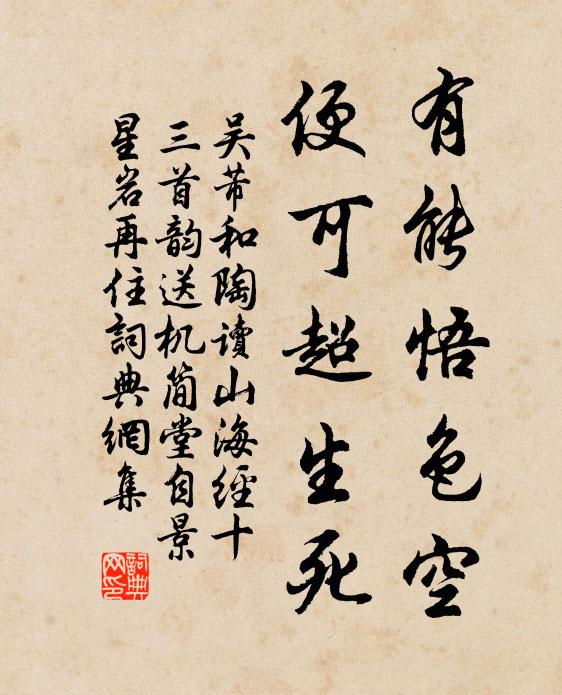 有能悟色空
便可超生死
吴芾和陶讀山海經十
三首韵送机简堂自景
星岩再住詞典網集
詞典網印